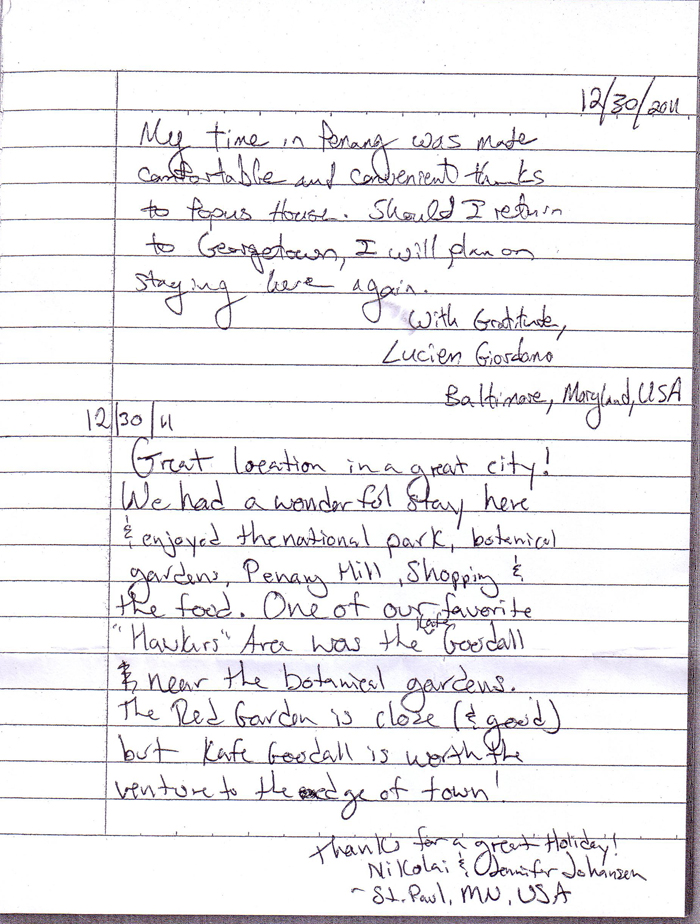 12/30/2011
My time in Penang was made
comfortable and convenient thanks
to Popus House. Should I return
to Georgetown, I will plan on
staying here again.
With Gratitude,
Lucien Giordano
Baltimore, Maryland, USA
12/30/11
Great location in a great city!
We had a wonderful stay here
& enjoyed the national park, botanical
gardens, Penang Hill, Shopping &
the food. One of our favorite
"Hawkers" Area was the Kafe Goodall
& near the botanical gardens.
The Red Garden is close (& good)
but Kafe Goodall is worth the
venture to the edge of town!
Thanks for a great Holiday!
Nikolai & Jennifer Johansen
~ St. Paul, MN, USA